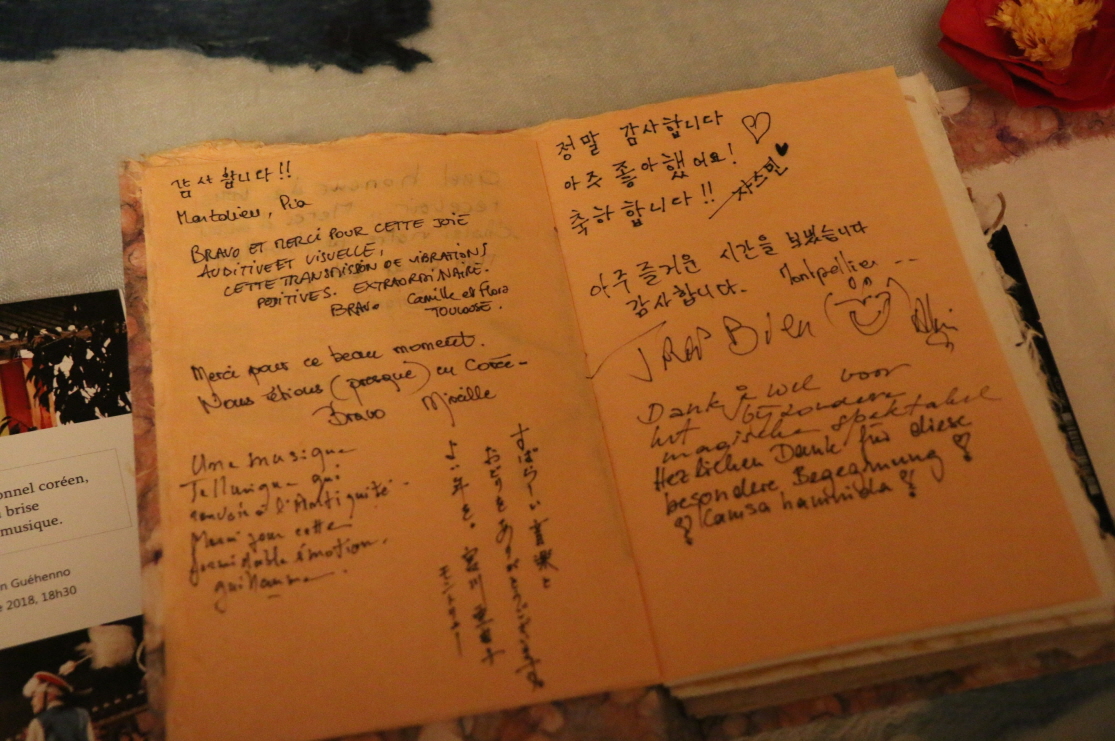 감사합니다!!
Montolieu, Pia
BRAVO ET MERCI POUR CETTE JOIE
AUDITIVE ET VISUELLE,
CETTE TRANSMISSION DE VIBRATIONS
POSITIVES. EXTRAORDINAIRE.
BRAVO Camille et Flora
TOULOUSE.
Merci pour ce beau moment.
Nous étions (presque) en Corée-
Bravo Mireille
Une musique
Tellurique qui
renvoie à l'Antiquité.
Merci pour cette
formidable émotion.
guillaume
すばらしい音楽を
ありがとうございました
정말 감사합니다 ♡
아주 좋아했어요!
축하합니다!! 자스민 ♥
아주 즐거운 시간을 보냈습니다
감사합니다. Montpellier --
TROP Bien
Dank je wel voor
het bijzondere
magische spektakel
Herzlichen Dank für diese
besondere Begegnung
Kamsa hamnida
onnel coréen,
brise
musique.
n Guéhenno
e 2018, 18h30